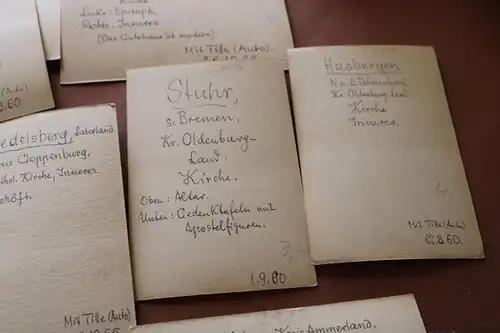 Kirche
Links: Epitaph,
Rechts, Inneres
(Das Gutshaus ist modern)
Mit Tille (Auto)
(Auto)
8.60
edelsberg, Saterland
eis Cloppenburg.
Kirche, Inneres.
Mit Tille (Auto)
Stuhr,
s. Bremen,
Kr. Oldenburg-
Land.
Kirche.
Oben: Altar.
Unten: Gedenktafeln mit
Apostelfiguren.
3,-
1.9.60
Hasbergen
Kr. Oldenburg Land
Kirche
Inneres.
4,-
Mit Tille (Auto)
12.8.60.
Kreis Ammerland.